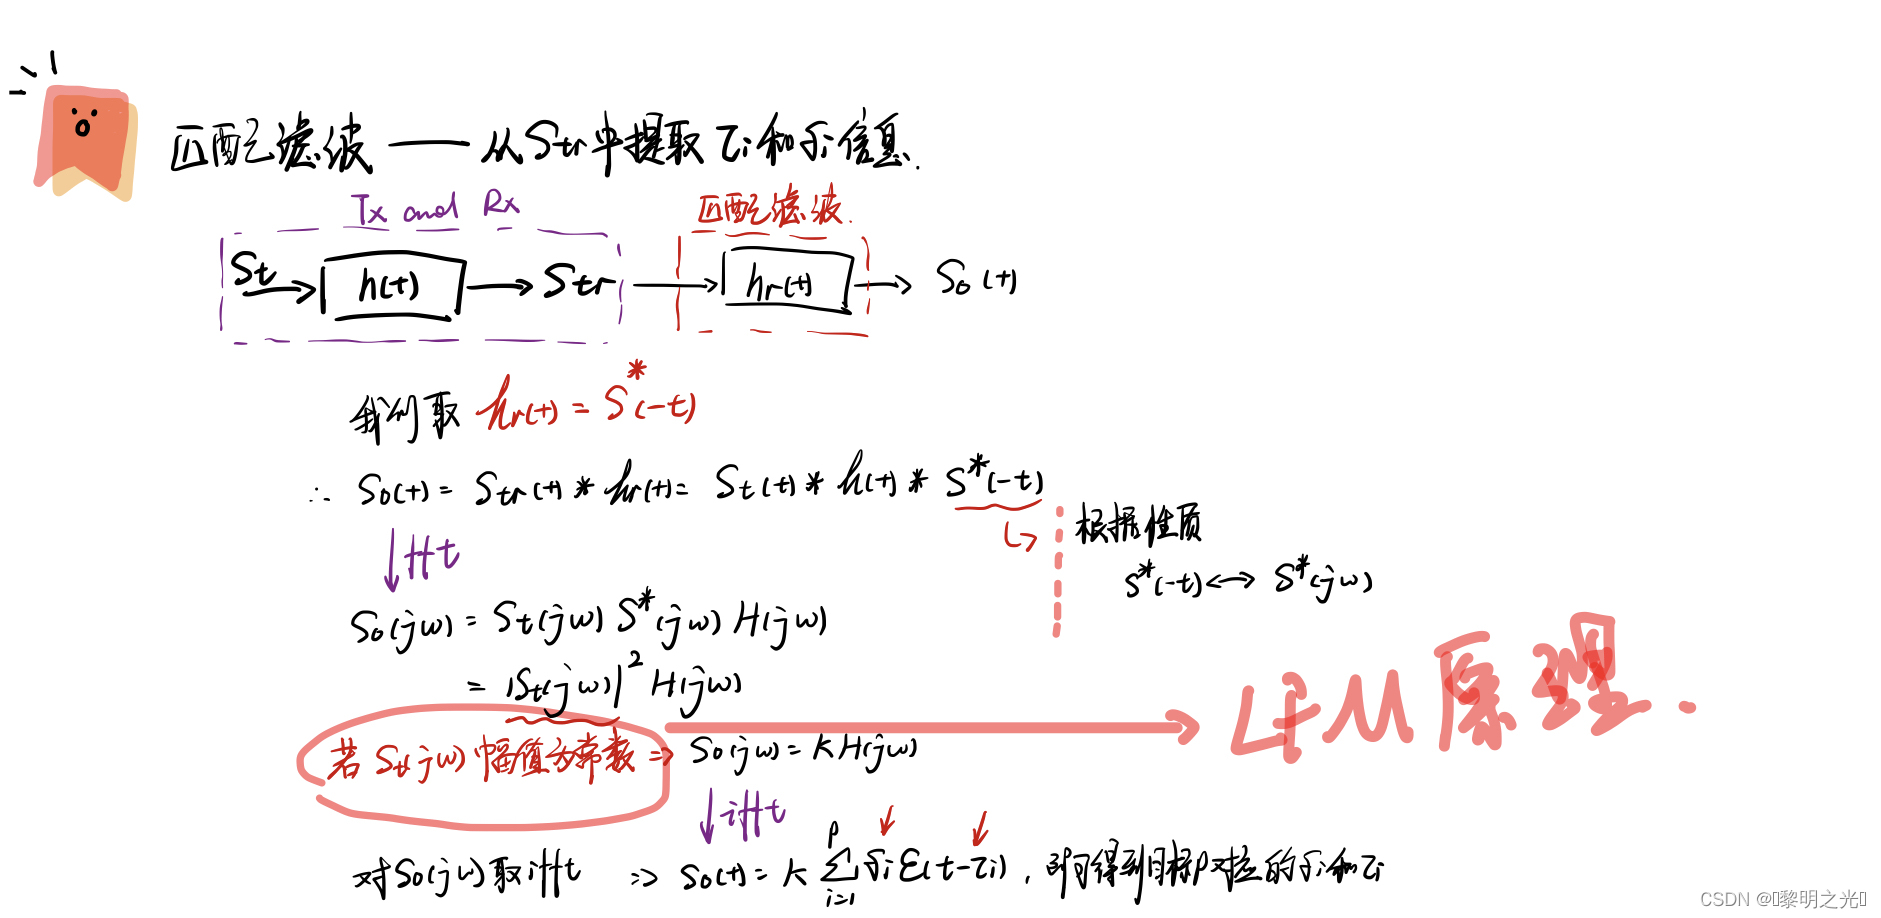 匹配滤波 —— 从Str中提取 τi和σi信息.
Tx and Rx
匹配滤波.
St → h(t) → Str → hr(t) → So(t)
我们取 hr(t) = S*(-t)
∴ So(t) = Str(t) * hr(t) = St(t) * h(t) * S*(-t)
根据性质
S*(-t) ↔ S*(jω)
↓fft
So(jω) = St(jω) S*(jω) H(jω)
= |St(jω)|² H(jω)
LFM原理.
若 St(jω)幅值为常数 => So(jω) = K H(jω)
↓ifft
对So(jω)取ifft => So(t) = K ∑ᵢ₌₁ᴾ σi ε(t-τi), 即可得到目标P对应的σi和τi
CSDN @黎明之光